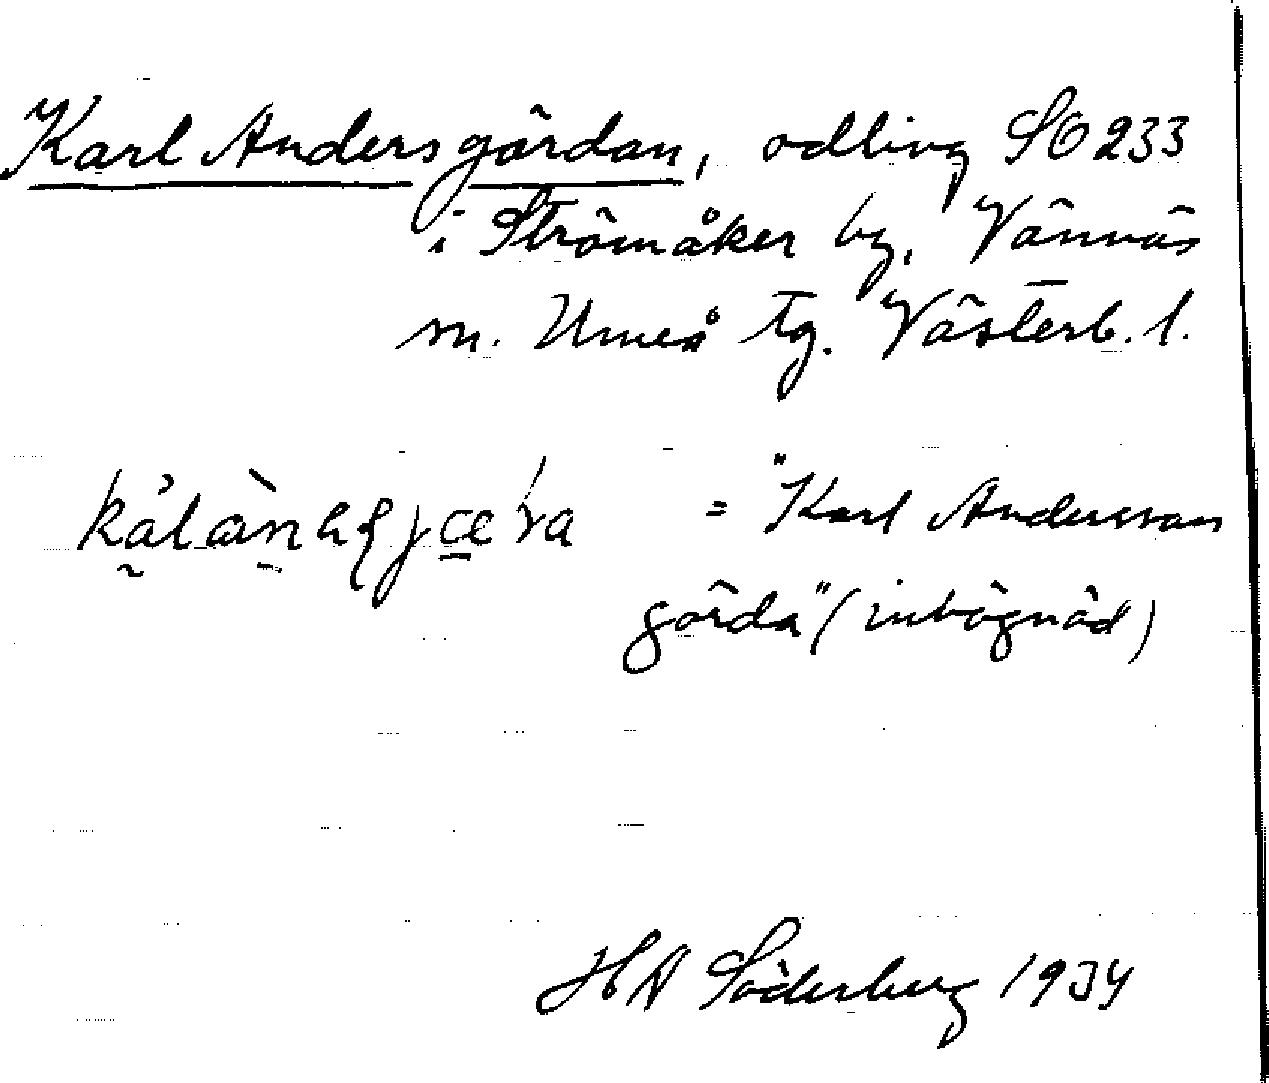 Karl Andersgärdan, odling SO 233
i Strömåker by, Vännäs
sn. Umeå tg. Västerb. l.
= "Karl Andersson
gärda" (inhägnad)
HA Söderberg 1934